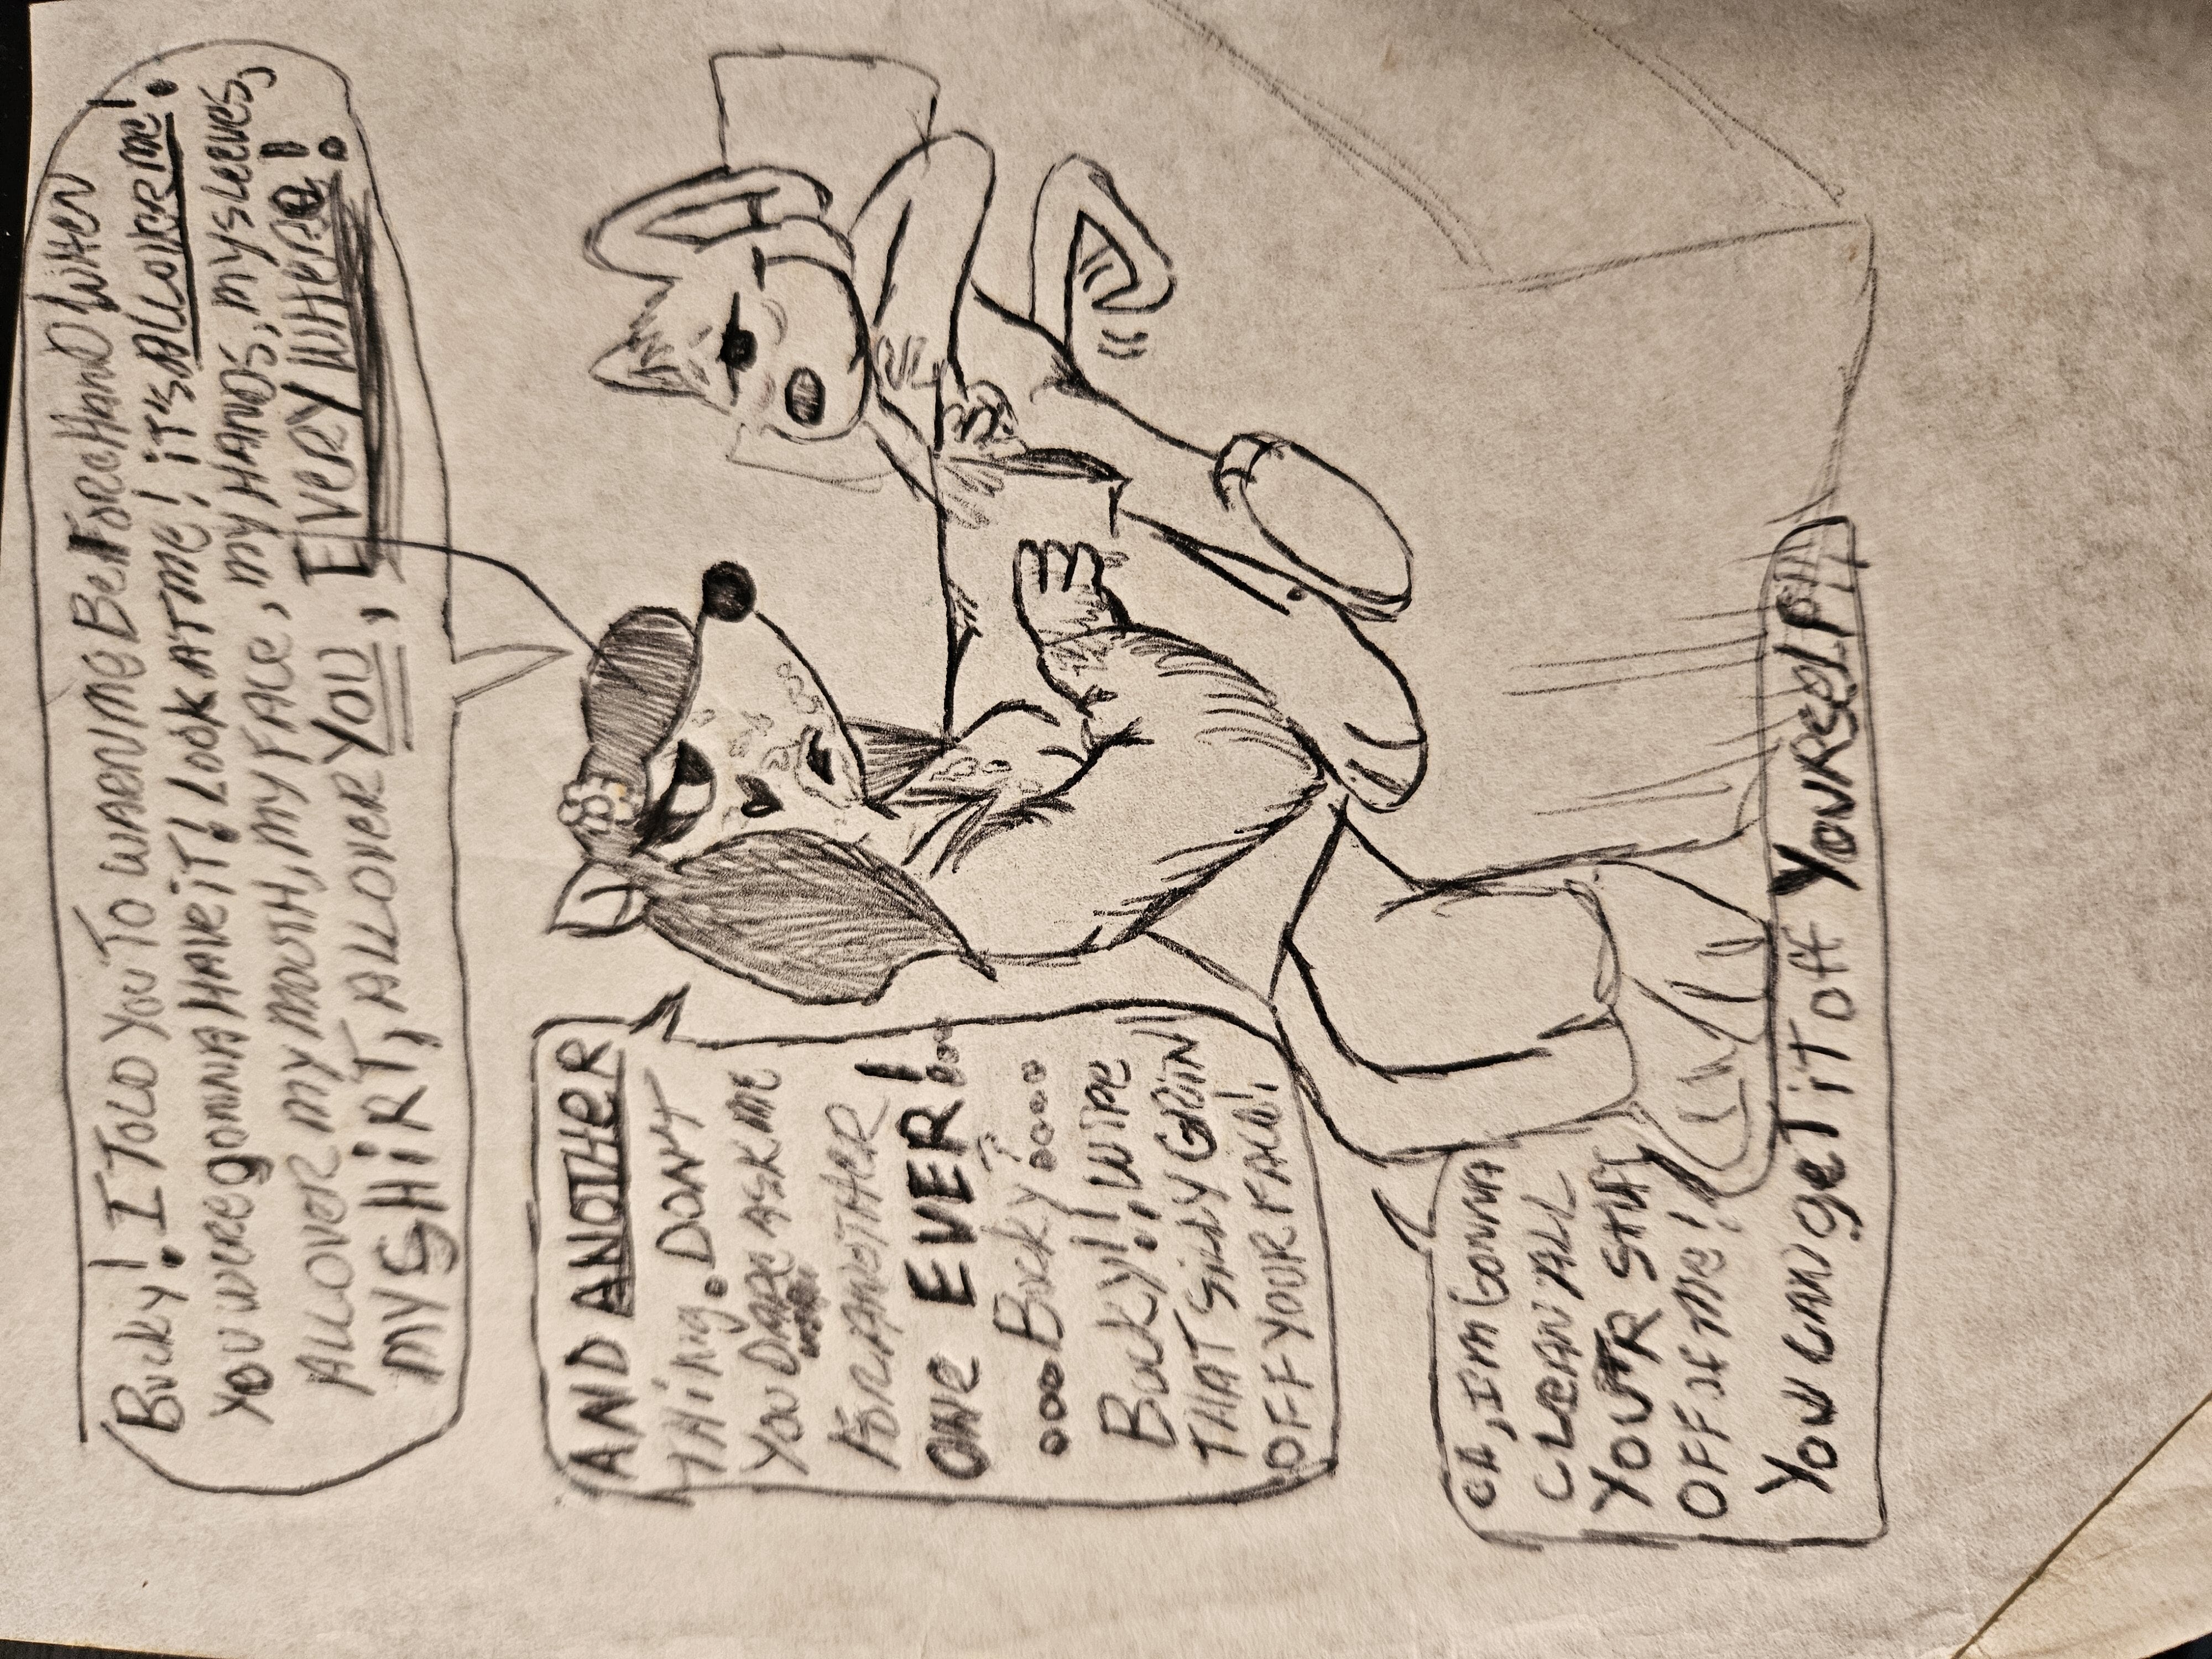 Bucky! I TOLD YOU TO WARN ME BEFORE HAND WHEN
YOU WERE gONNA HAVE iT! LOOK AT ME! iT'S ALL OVER ME!
ALL OVER MY MOUTH, MY FACE, MY HANDS, MY SLEEVES,
MY SHiRT, ALL OVER YOU, EVERY WHERE!
AND ANOTHER
THiNg. DON'T
YOU DARE ASK ME
FOR ANOTHER
ONE EVER!...
...Bucky?....
Bucky!! WIPE
THAT SiLLY GRiN
OFF YOUR FACE!
I'M GONNA
CLEAN ALL
YOUR STUFF
OFF OF ME!
YOU CAN geT iT OFF YOURSELF!!